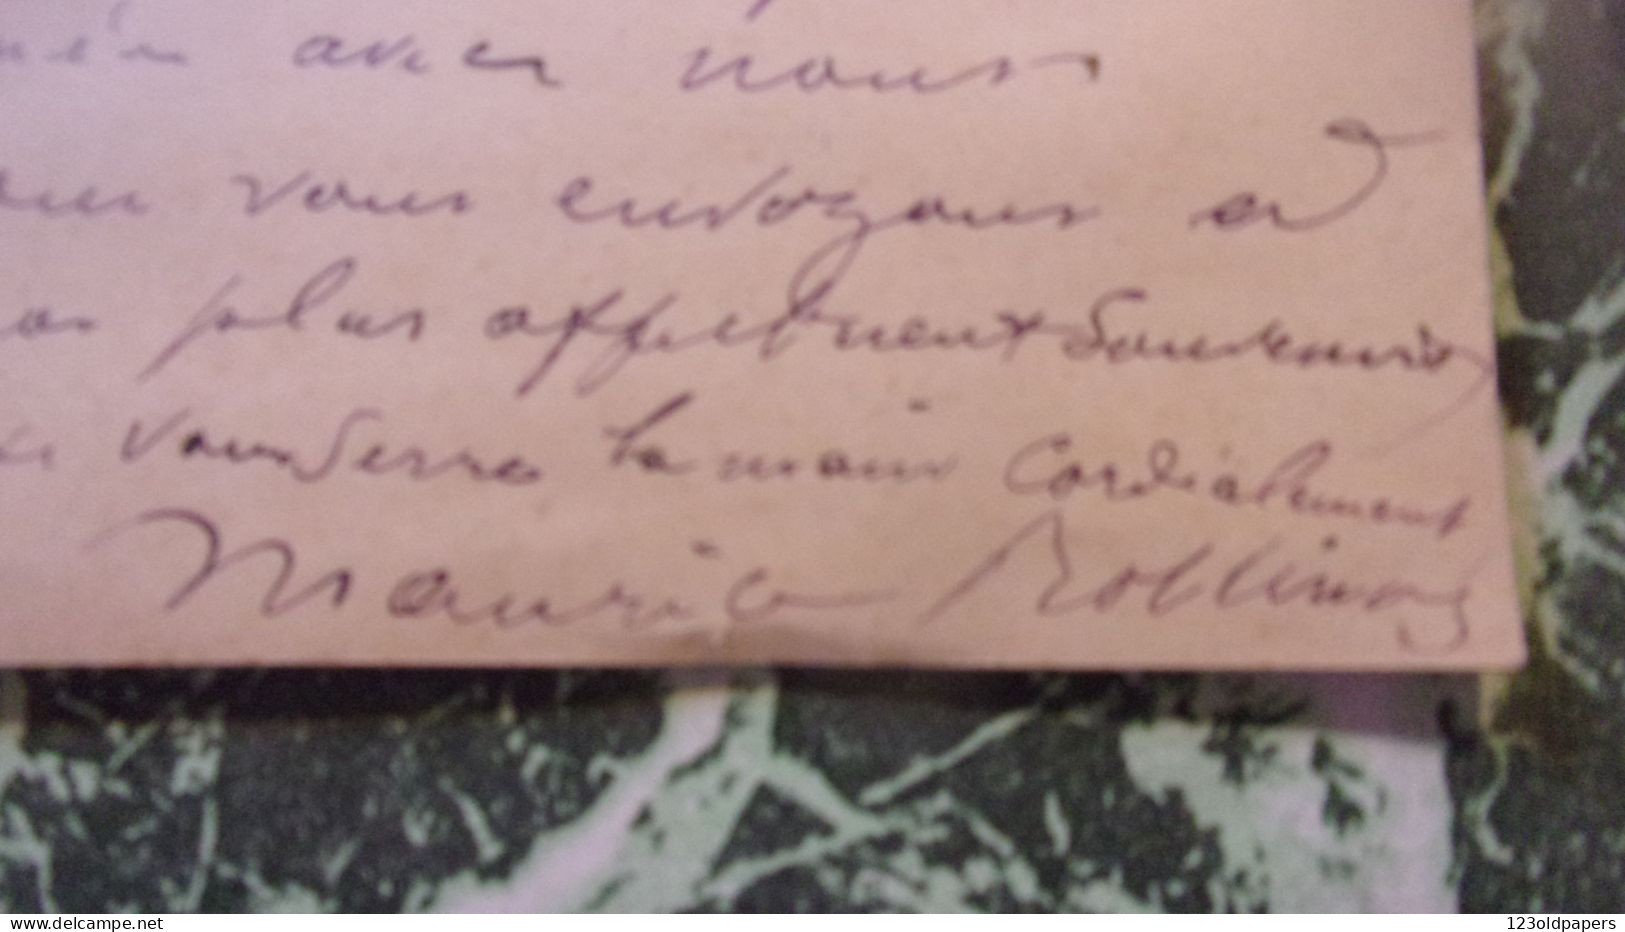 avec nous
vous envoyons et
plus affectueux souvenirs
vous serre la main cordialement
Maurice Rollinat
www.delcampe.net
123oldpapers